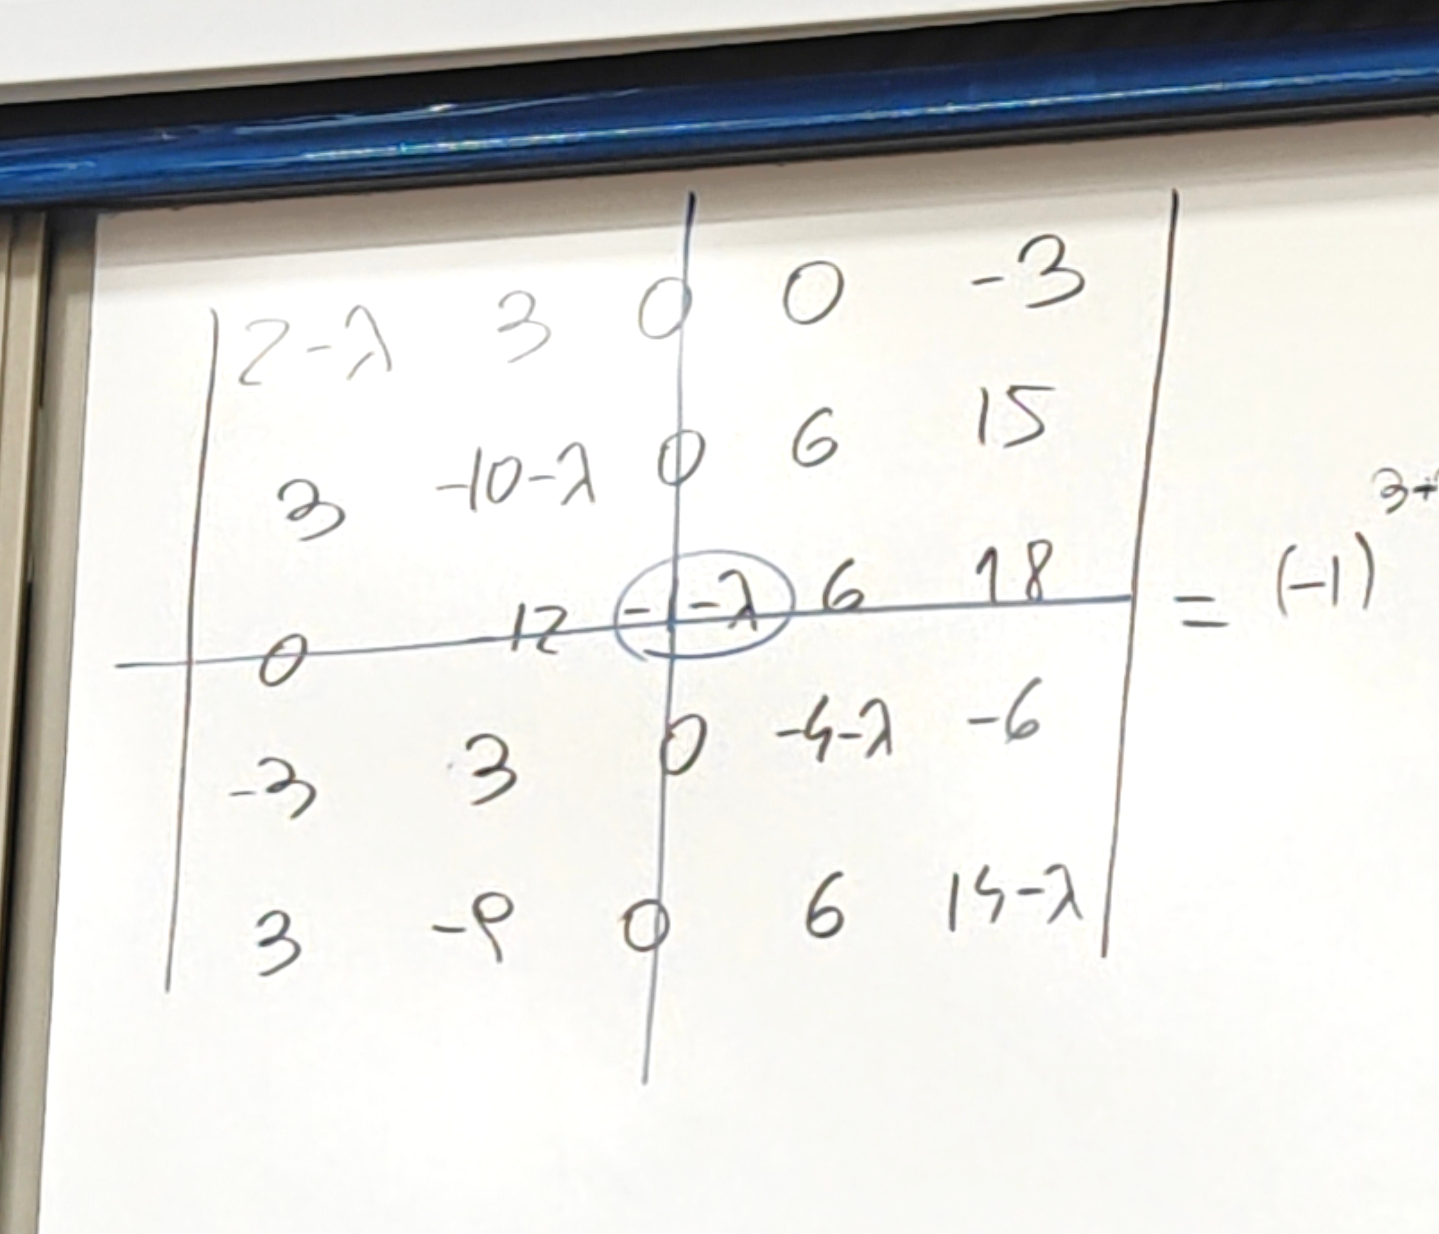 |2-λ 3 0 0 -3|
|3 -10-λ 0 6 15|
|0 12 -1-λ 6 18| = (-1)^3+
|-3 3 0 -4-λ -6|
|3 -9 0 6 14-λ|